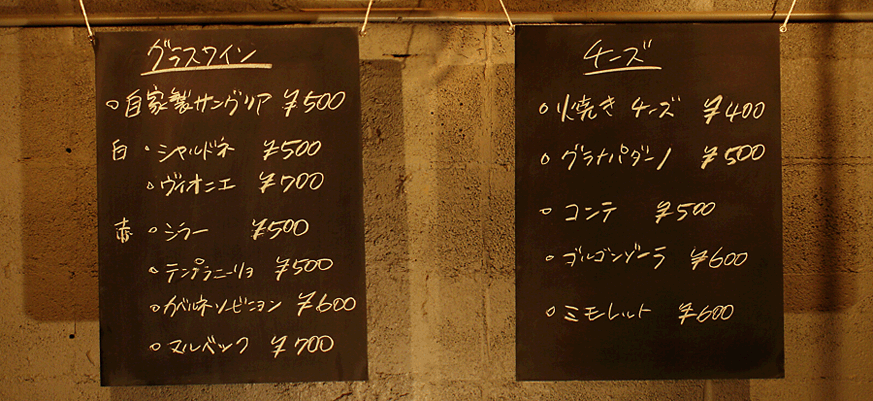 グラスワイン
○自家製サングリア ¥500
白 ○シャルドネ ¥500
○ヴィオニエ ¥700
赤 ○シラー ¥500
○テンプラニーリョ ¥500
○カベルネソービニヨン ¥600
○マルベック ¥700
チーズ
○火焼きチーズ ¥400
○グラナパダーノ ¥500
○コンテ ¥500
○ゴルゴンゾーラ ¥600
○ミモレット ¥600